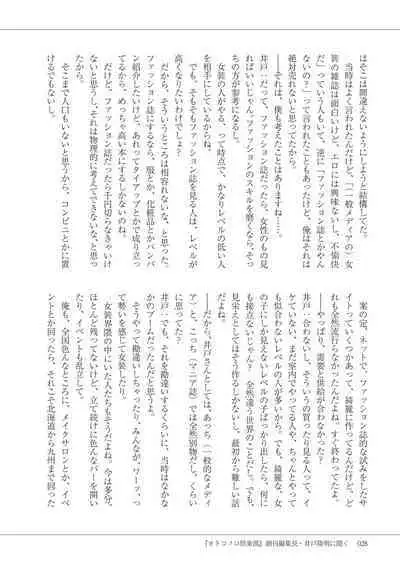 はそこは間違えないようにしようと結構してた。
当時はよく言われたんだけど、「（一般メディアの）女
装の雑誌は面白いけど、エロには興味なし、不愉快
だ」っていう人もいて、逆に「ファッション誌とかやん
ないの？」って言われたこともあったけど、俺はそれは
絶対売れないと思ってたから。
――それは、僕も考えたことはありますね……。
井戸　だって、ファッション誌だったら、女性のもの見
ればいいじゃん。ファッションのスキルを磨くなら、そっ
ちの方が参考になるし。
女装の人がやる、って時点で、かなりレベルの低い人
を相手にしているからね。
でも、そもそもファッション誌を見る人は、レベルが
高くなりたいわけでしょ？
だから、そういうところは相容れないな、と思った。
ファッション誌にするなら、服とか、化粧品とかバンバ
ン紹介したいけど、あれってタイアップとかで成り立っ
てるから、めっちゃ高い本にするしかないのね。
だけど、ファッション誌だったら千円切らなきゃいけ
ないと思うし、それは物理的に考えてできないな、と思っ
たから。
そこまで人口もいないと思うから、コンビニとかに置
けるでもないし。
案の定、ネットで、ファッション誌的な試みをしたサ
イトっていくつかあって、綺麗に作ってるんだけど、ど
れも全然流行らなかったんだよね。すぐ終わってたよ。
――やっぱり、需要と供給が合わなかった？
井戸　合わないし、そういうの買ったり見る人って、イ
ケていない、まだ室内でやってる人や、ちゃんとやって
も似合わないレベルの人が多いから。でも、綺麗な、女
の子にしか見えないレベルの子ばっか出したら、何に
も接点ないじゃん？　全然違う世界のことだし。でも、
見栄えとしてはそう作るしかないし。最初から難しい話
だよね。
――だから、井戸さんとしては、あっち（一般的なメディ
ア）と、こっち（マニア誌）では全然別物だし、くらい
に思ってた？
井戸　でも、それを勘違いするくらいに、当時はなかな
かのブームだったんだと思うよ。
そうやって勘違いしちゃったり、みんなが、ワーッ、っ
て勢いを感じて女装したり。
女装界隈の中にいた人たちもそうだよね。今は多分、
ほとんど残ってないけど、立て続けに色んなバーを開い
たり、イベントも乱立して。
俺も、全国色んなところに、メイクサロンとか、イベ
ントとか回ったら、それこそ北海道から九州まで回った
『オトコノコ倶楽部』創刊編集長・井戸隆明に聞く　028